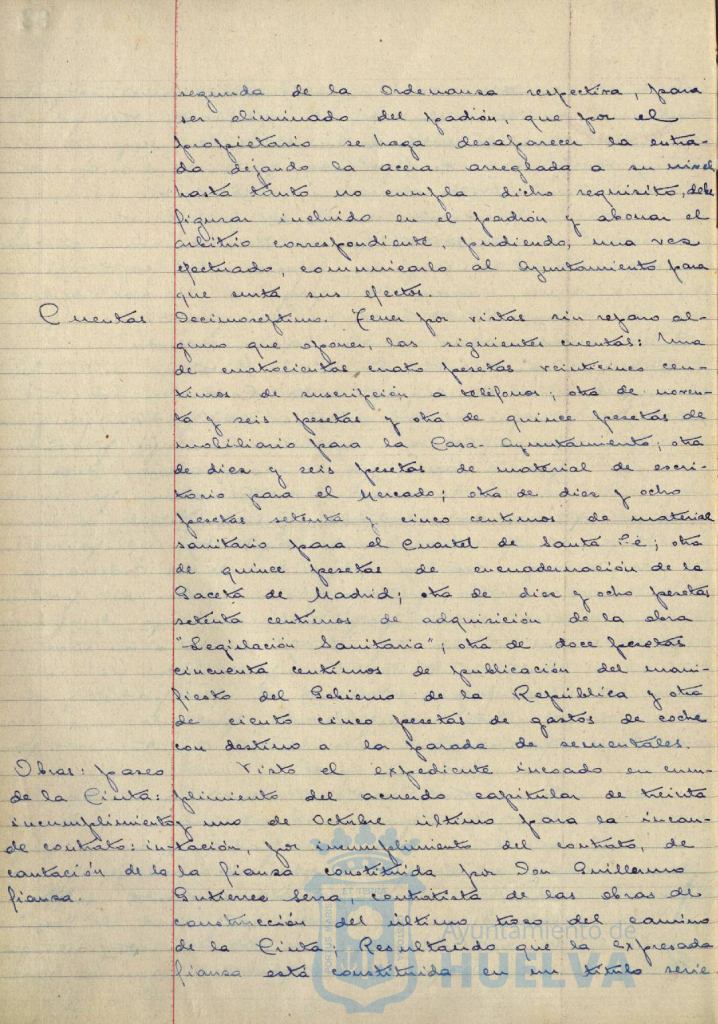 segunda de la Ordenanza respectiva, para
ser eliminado del padrón, que por el
propietario se haga desaparecer la entra-
da dejando la acera arreglada a su nivel
hasta tanto no cumpla dicho requisito, debe
figurar incluido en el padrón y abonar el
arbitrio correspondiente, pudiendo, una vez
efectuado, comunicarlo al Ayuntamiento para
que surta sus efectos.
Cuentas
Decimoséptimo. Tener por vistas sin reparo al-
guno que oponer, las siguientes cuentas: Una
de cuatrocientas cuatro pesetas veinticinco cen-
timos de suscripción a teléfonos; otra de noven-
ta y seis pesetas y otra de quince pesetas de
mobiliario para la Casa-Ayuntamiento; otra
de diez y seis pesetas de material de escri-
torio para el Mercado; otra de diez y ocho
pesetas setenta y cinco centimos de material
sanitario para el Cuartel de Santa Fé; otra
de quince pesetas de encuadernación de la
Gaceta de Madrid; otra de diez y ocho pesetas
setenta centimos de adquisición de la obra
"Legislación Sanitaria"; otra de doce pesetas
cincuenta centimos de publicación del mani-
fiesto del Gobierno de la República y otra
de ciento cinco pesetas de gastos de coche
con destino a la parada de sementales.
Obras: paseo
de la Cinta:
incumplimiento
de contrato: in-
cautación de la
fianza.
Visto el expediente incoado en cum-
plimiento del acuerdo capitular de treinta
y uno de Octubre último para la incau-
tación, por incumplimiento del contrato, de
la fianza constituida por Don Guillermo
Gutierrez Serra, contratista de las obras de
construcción del último trozo del camino
de la Cinta. Resultando que la expresada
fianza está constituida en un título serie
Ayuntamiento de
HUELVA